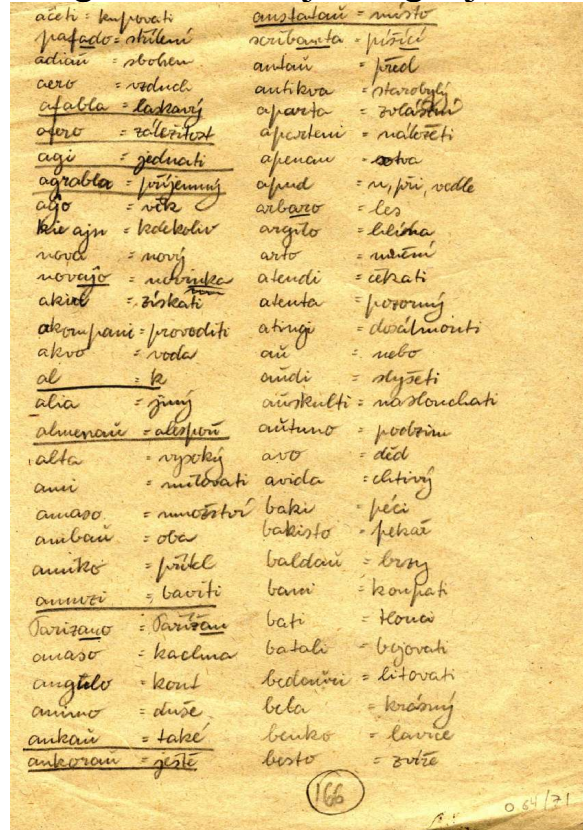 ačeti = kupovati
pafado = střílení
adiaŭ = sbohem
aero = vzduch
afabla = laskavý
afero = záležitost
agi = jednati
agrabla = příjemný
aĝo = věk
kie ajn = kdekoliv
nova = nový
novaĵo = novinka
akiri = získati
akompani = provoditi
akvo = voda
al = k
alia = jiný
almenaŭ = alespoň
alta = vysoký
ami = milovati
amaso = množství
ambaŭ = oba
amiko = přítel
amuzi = baviti
Parizano = Pařížan
anaso = kachna
angulo = kout
animo = duše
ankaŭ = také
ankoraŭ = ještě
anstataŭ = místo
scribanta = píšící
antaŭ = před
antikva = starobylý
aparta = zvláštní
aparteni = náležeti
apenaŭ = sotva
apud = u, při, vedle
arbaro = les
argilo = hlína
arto = umění
atendi = čekati
atenta = pozorný
atingi = dosáhnouti
aŭ = nebo
aŭdi = slyšeti
aŭskulti = naslouchati
aŭtuno = podzim
avo = děd
avida = chtivý
baki = péci
bakisto = pekař
baldaŭ = brzy
bani = koupati
bati = tlouci
batali = bojovati
bedaŭri = litovati
bela = krásný
benko = lavice
besto = zvíře
166
0.64/71